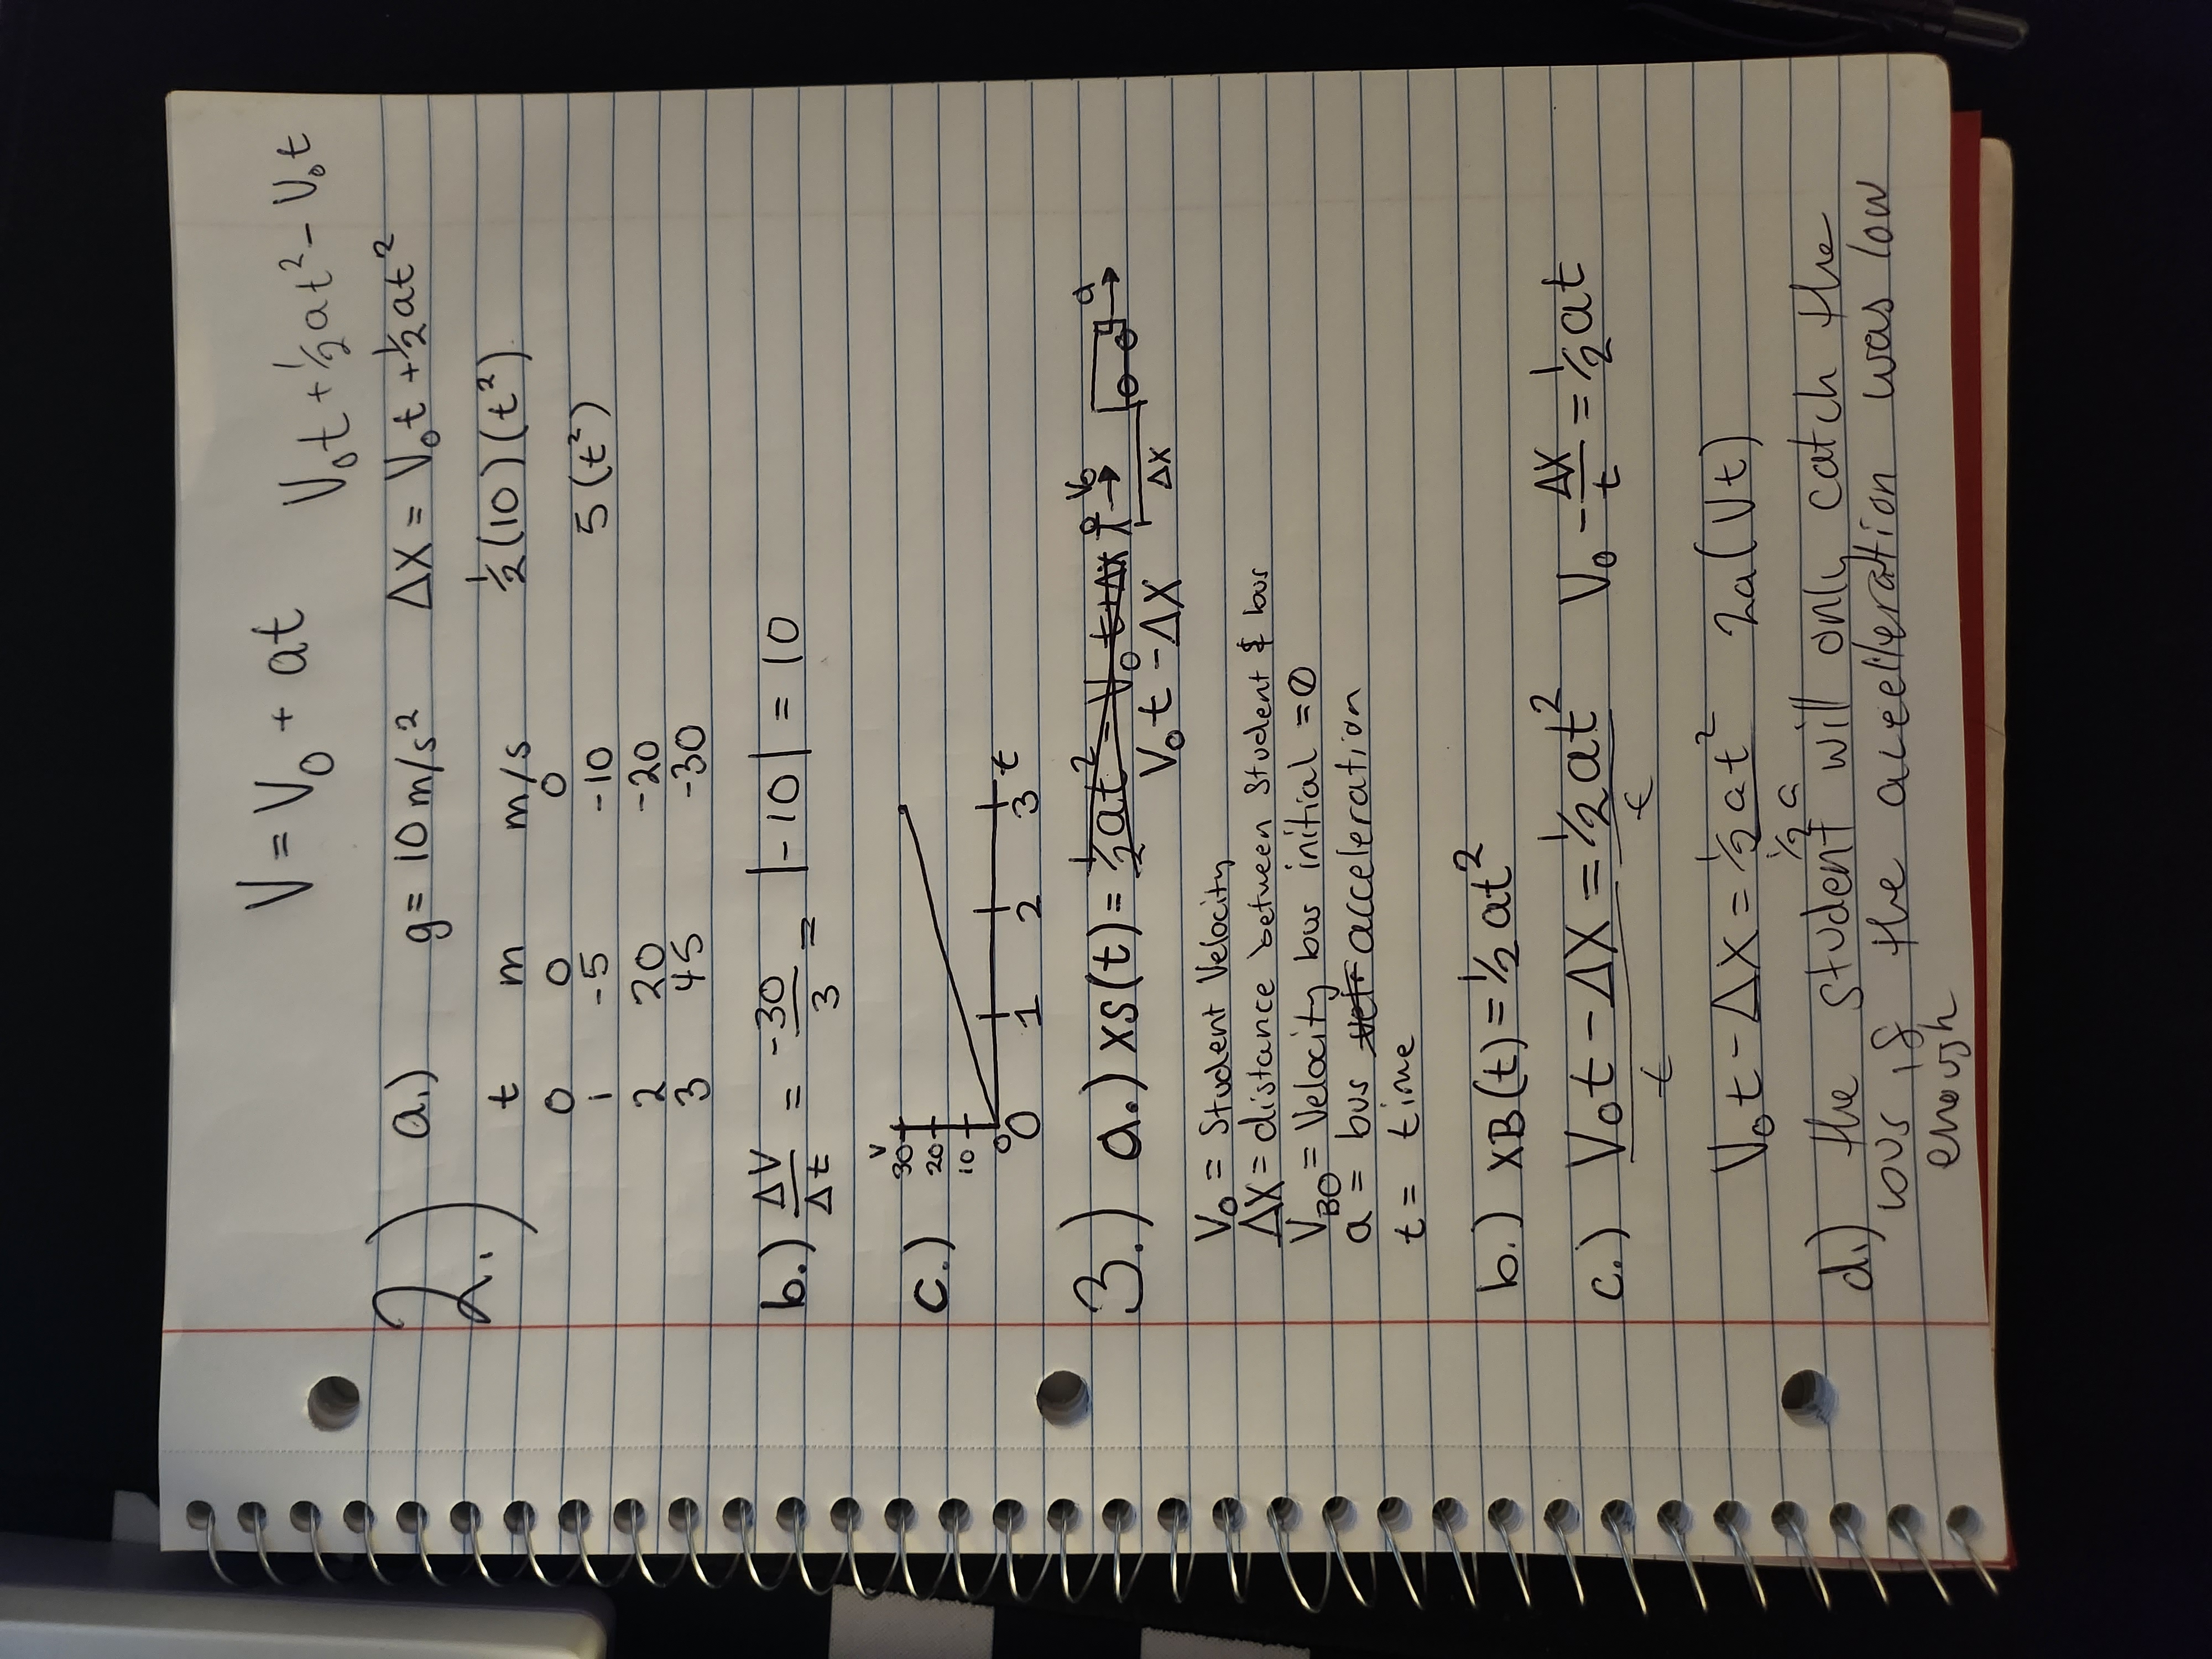 V = V₀ + at
V₀t + ½at² - V₀t
2.) a.) g = 10 m/s² ΔX = V₀t + ½at²
t m m/s ½(10)(t²)
0 0 0
1 -5 -10 5(t²)
2 20 -20
3 45 -30
b.) ΔV/Δt = -30/3 = |-10| = 10
c.) v
30
20
10
0
0 1 2 3 t
3.) a.) xs(t) = ½at² - V₀t + Δx V₀ a
V₀t - ΔX Δx
V₀ = Student Velocity
ΔX = distance between Student & bus
V_BO = Velocity bus initial = 0
a = bus acceleration
t = time
b.) XB(t) = ½ at²
c.) (V₀t - ΔX)/t = ½at²/t V₀ - ΔX/t = ½at
V₀t - ΔX = ½at²/½a 2a(Vt)
d.) the student will only catch the
bus if the acelleration was low
enough